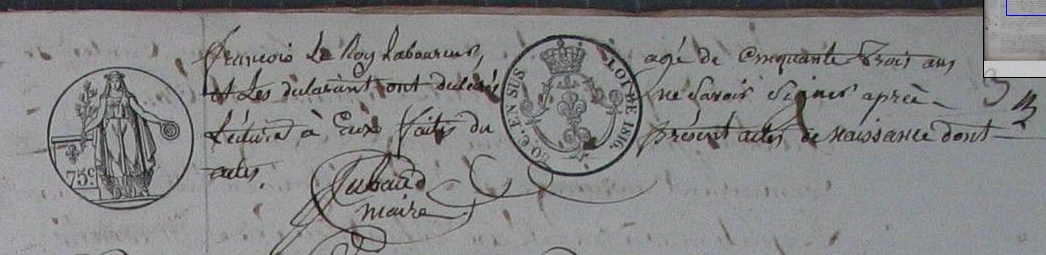 françois Le Roy Laboureur, agé de Cinquante Trois ans
et Les declarant ont declarés ne Savoir Signer après
Lecture à Eux faite du présent actes de naissance dont
actes.
maire
75 c
50 C. EN SUS
LOI DE 1816.